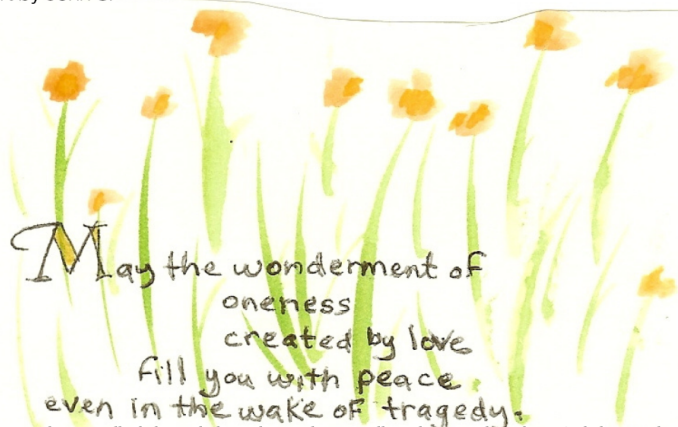 May the wonderment of
oneness
created by love
fill you with peace
even in the wake of tragedy.